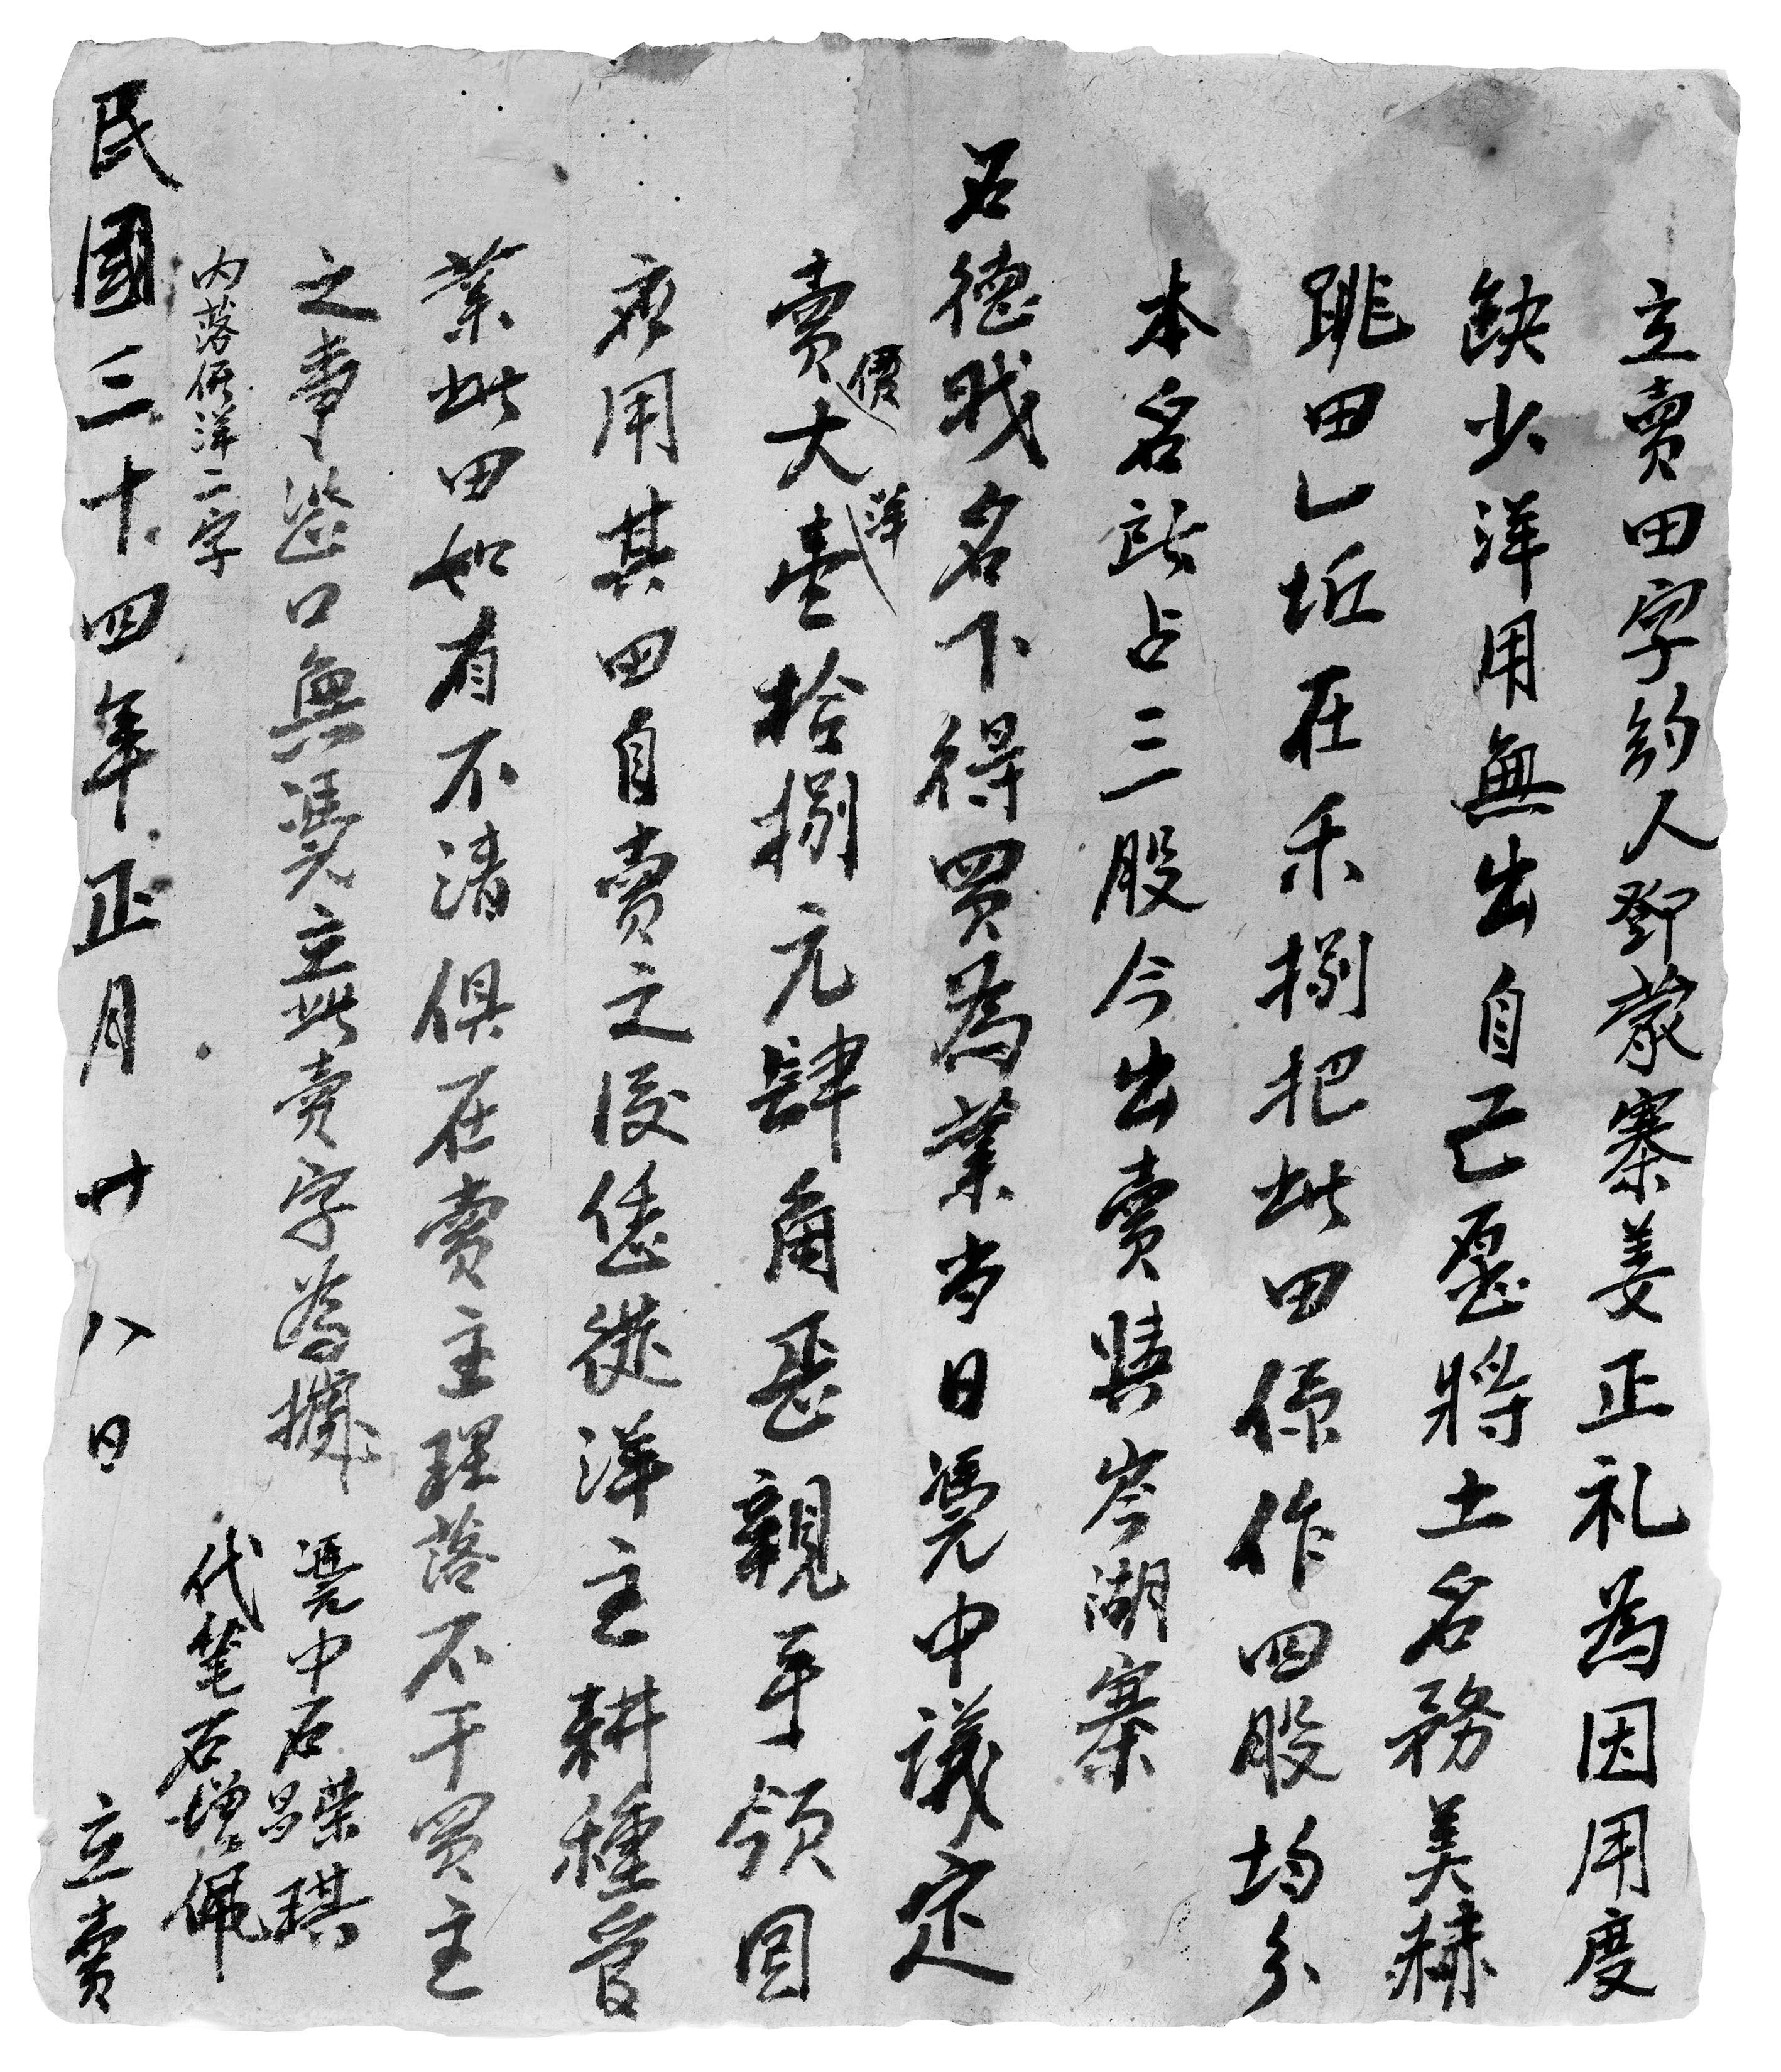 立賣田字約人鄧蒙寨姜正礼為因用度
缺少洋用無出自己愿將土名務美赫
跳田乚坵在禾捌把此田係作四股均分
本名所占三股今出賣與岑湖寨
石德成名下得買為業当日憑中議定
賣價大洋壹拾捌元肆角甚親手領回
求用其田自賣之後恁從洋主耕種管
業此田如有不清俱在賣主理落不干買主
之事恐口無憑立此賣字為據
憑中石昌榮琪
內落價洋二字
代筆石增佩
民國三十四年正月廿八日 立賣